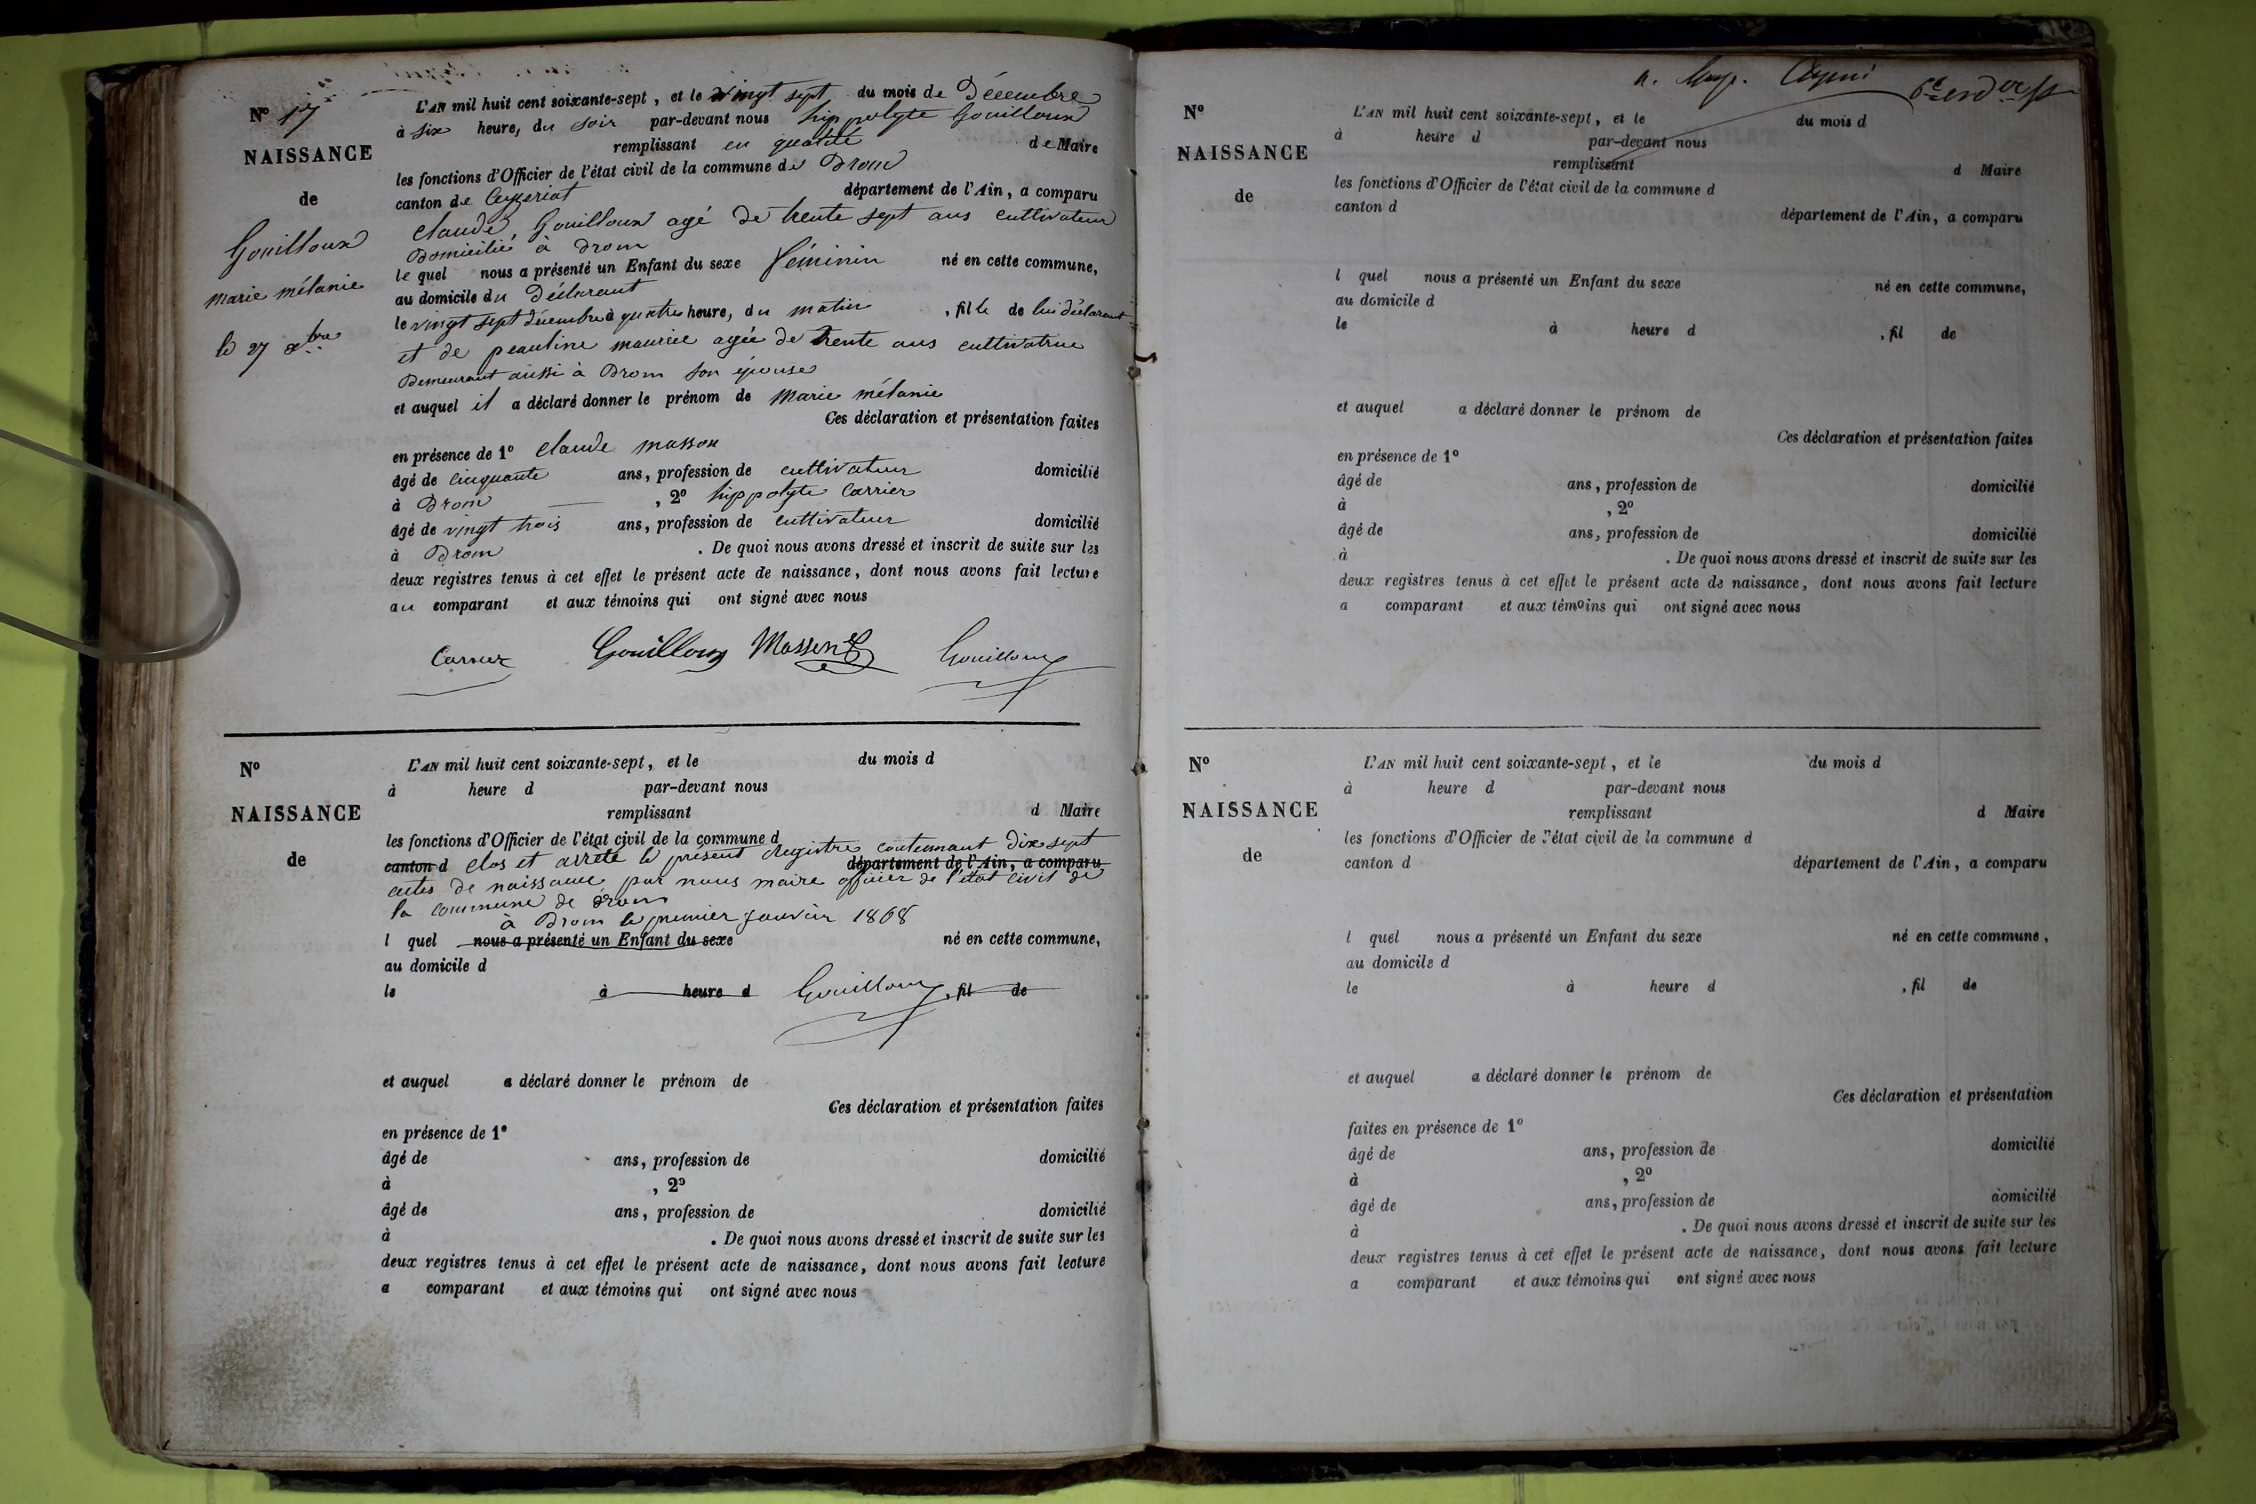 Nº 17
NAISSANCE
de
Gouilloux
marie mélanie
le 27 xbre
L'AN mil huit cent soixante-sept, et le vingt sept du mois de Décembre
à six heure, du soir par-devant nous hippolyte Gouilloux
remplissant en qualité de Maire
les fonctions d'Officier de l'état civil de la commune de Drom
canton de Ceyzeriat département de l'Ain, a comparu
claude Gouilloux agé de trente sept ans cultivateur
Domicilié à Drom
le quel nous a présenté un Enfant du sexe féminin né en cette commune,
au domicile du Déclarant
le vingt sept décembre à quatre heure, du matin , fille de lui déclarant
et de peauline maurice agée de trente ans cultivatrice
Demeurant aussi à Drom son épouse
et auquel il a déclaré donner le prénom de Marie mélanie
Ces déclaration et présentation faites
en présence de 1º claude masson
âgé de cinquante ans, profession de cultivateur domicilié
à Drom , 2º hippolyte Carrier
âgé de vingt trois ans, profession de cultivateur domicilié
à Drom . De quoi nous avons dressé et inscrit de suite sur les
deux registres tenus à cet effet le présent acte de naissance, dont nous avons fait lecture
au comparant et aux témoins qui ont signé avec nous
Carrier Gouilloux Masson Gouilloux
Nº
NAISSANCE
de
L'AN mil huit cent soixante-sept, et le du mois d
à heure d par-devant nous
remplissant d Maire
les fonctions d'Officier de l'état civil de la commune d
canton d clos et arrêté le présent Registre contennant Dix sept
département de l'Ain, a comparu
actes de naissance par nous maire officier de l'état civil de
la commune de drom
à Drom le premier Janvier 1868
l quel nous a présenté un Enfant du sexe né en cette commune,
au domicile d
le à heure d Gouilloux , fil de
et auquel a déclaré donner le prénom de
Ces déclaration et présentation faites
en présence de 1º
âgé de ans, profession de domicilié
à , 2º
âgé de ans, profession de domicilié
à . De quoi nous avons dressé et inscrit de suite sur les
deux registres tenus à cet effet le présent acte de naissance, dont nous avons fait lecture
a comparant et aux témoins qui ont signé avec nous
Nº
NAISSANCE
de
L'AN mil huit cent soixante-sept, et le du mois d
à heure d par-devant nous
remplissant d Maire
les fonctions d'Officier de l'état civil de la commune d
canton d
département de l'Ain, a comparu
l quel nous a présenté un Enfant du sexe né en cette commune,
au domicile d
le à heure d , fil de
et auquel a déclaré donner le prénom de
Ces déclaration et présentation faites
en présence de 1º
âgé de ans, profession de domicilié
à , 2º
âgé de ans, profession de domicilié
à . De quoi nous avons dressé et inscrit de suite sur les
deux registres tenus à cet effet le présent acte de naissance, dont nous avons fait lecture
a comparant et aux témoins qui ont signé avec nous
Nº
NAISSANCE
de
L'AN mil huit cent soixante-sept, et le du mois d
à heure d par-devant nous
remplissant d Maire
les fonctions d'Officier de l'état civil de la commune d
canton d département de l'Ain, a comparu
l quel nous a présenté un Enfant du sexe né en cette commune,
au domicile d
le à heure d , fil de
et auquel a déclaré donner le prénom de
Ces déclaration et présentation
faites en présence de 1º
âgé de ans, profession de domicilié
à , 2º
âgé de ans, profession de domicilié
à . De quoi nous avons dressé et inscrit de suite sur les
deux registres tenus à cet effet le présent acte de naissance, dont nous avons fait lecture
a comparant et aux témoins qui ont signé avec nous